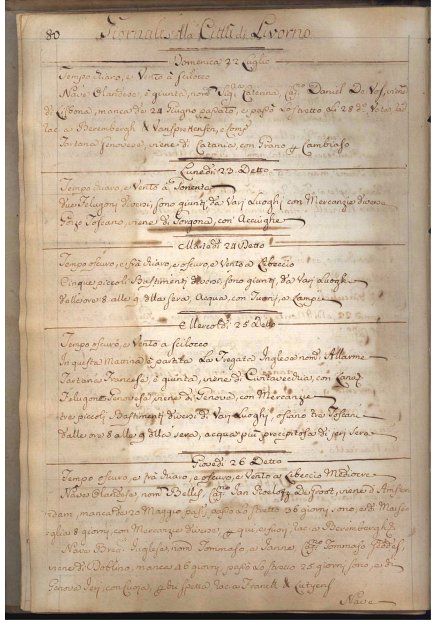 80 Giornali della Città di Livorno
Domenica 22 Luglio
Tempo chiaro, e Vento à scilocco
Nave Olandese, è giunta, nom: Caterina, Cap: Daniel De Vos, viene
di Lisbona, manca da 24 Giugno passato, e passò lo stretto li 28 d:
rac: a Berembergh & e Comp:
Tartana Genovese, viene di Catania, con Grano p Cambiaso
Lunedì 23 Detto
Tempo chiaro, e Vento à Ponente
due Felugoni diversi, sono giunti da Vari Luoghi con Mercanzie diverse
Gozo Toscano, viene di Gorgona, con Acciughe
Martedì 24 Detto
Tempo oscuro, e frà chiaro, e oscuro, e Vento a Libeccio
Cinque piccoli Bastimenti diversi, sono giunti, da Vari Luoghi
dalle ore 8 alle 9 della sera, Acqua, con Tuoni, e Lampi
Mercoldì 25 Detto
Tempo oscuro, e Vento à scilocco
In questa Mattina è partita La Fregata Inglese nom: Allarme
Tartana Francese, è giunta, viene di Civitavecchia, con Lana
Felugone Genovese viene di Genova, con Mercanzie
tre piccoli Bastimenti diversi da Vari Luoghi,
dalle ore 8 alle 9 della sera, acqua più precipitosa di jeri sera
Giovedì 26 Detto
Tempo oscuro, e frà chiaro, e oscuro, e Vento a Libeccio Mediocre
Nave Olandese, nom: Cap: Jan Roelofz Degroot, viene d Amster
dam, manca da 20 Maggio pas: passò lo stretto 36 giorni sono, e di Marsi
eglia 8 giorni, con Mercanzie diverse, rac: a Berembergh &
Nave Brich Inglese, nom: Tommaso e Janne Cap: Tommaso
viene di manca 46 giorni, passò lo stretto 25 giorni sono, e di
Genova jeri, con Cuoja, & rac: a Franck &
Nave